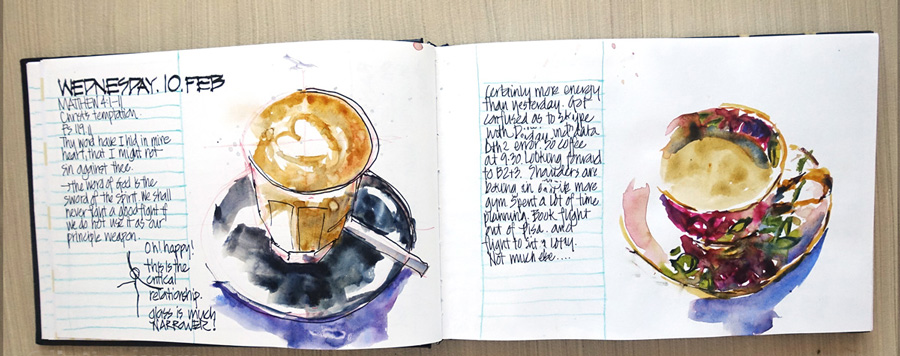 WEDNESDAY. 10. FEB
MATTHEW 4:1-11
Christ's temptation.
Ps 119.11
Thy word have I hid in mine
heart, that I might not
sin against thee.
→ The word of God is the
sword of the spirit. We shall
never fight a good fight if
we do not use it as our
principle weapon.
Oh! happy!
this is the
critical
relationship.
glass is much
NARROWER!
Certainly more energy
than yesterday. Got
confused as to skype
with and data
error. So coffee
at 9.30 Looking forward
to B2+3. Shoulders are
more
gym. Spent a lot of time
planning. Book flight
out of Pisa. and
flight to
Not much else....